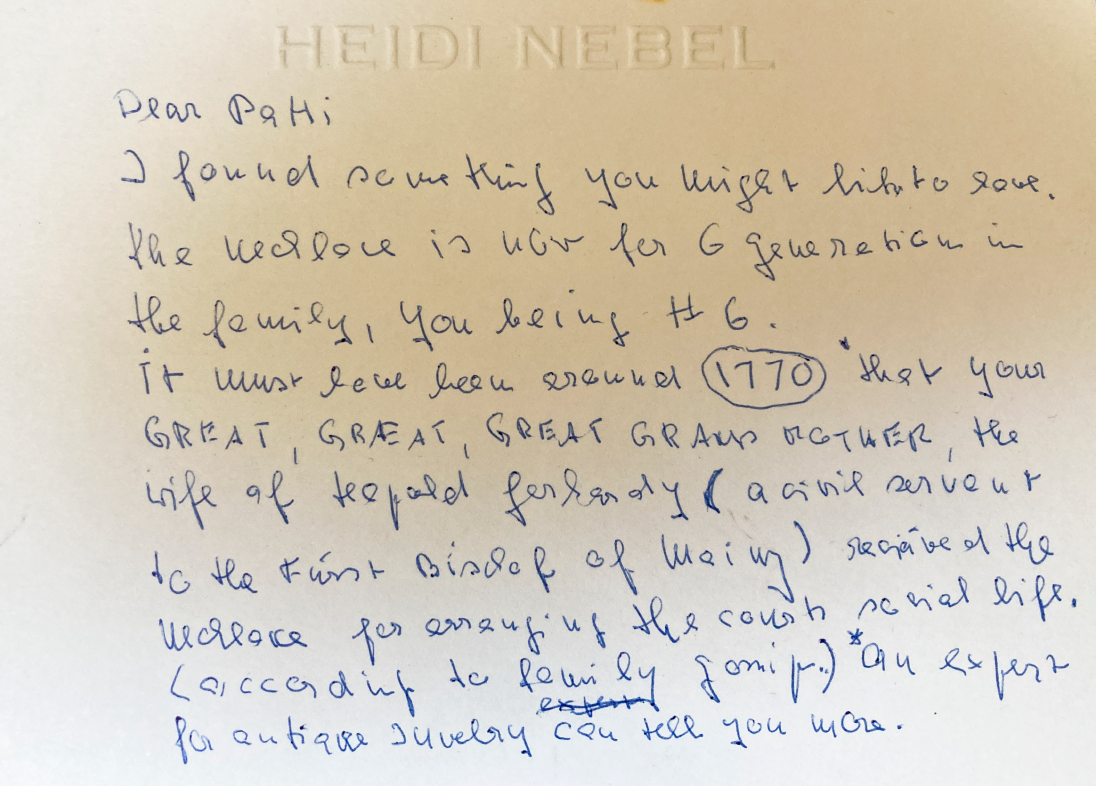 HEIDI NEBEL
Dear Patti
I found something you might like to have.
the necklace is now for 6 generation in
the family, you being # 6.
it must have been around 1770 * that your
GREAT, GREAT, GREAT GRAND MOTHER, the
wife of Leopold (a civil servant
to the Fürst Bischof of Mainz) received the
necklace for arranging the courts social life.
(according to family gossip.) * An expert
for antique Juvelry can tell you more.